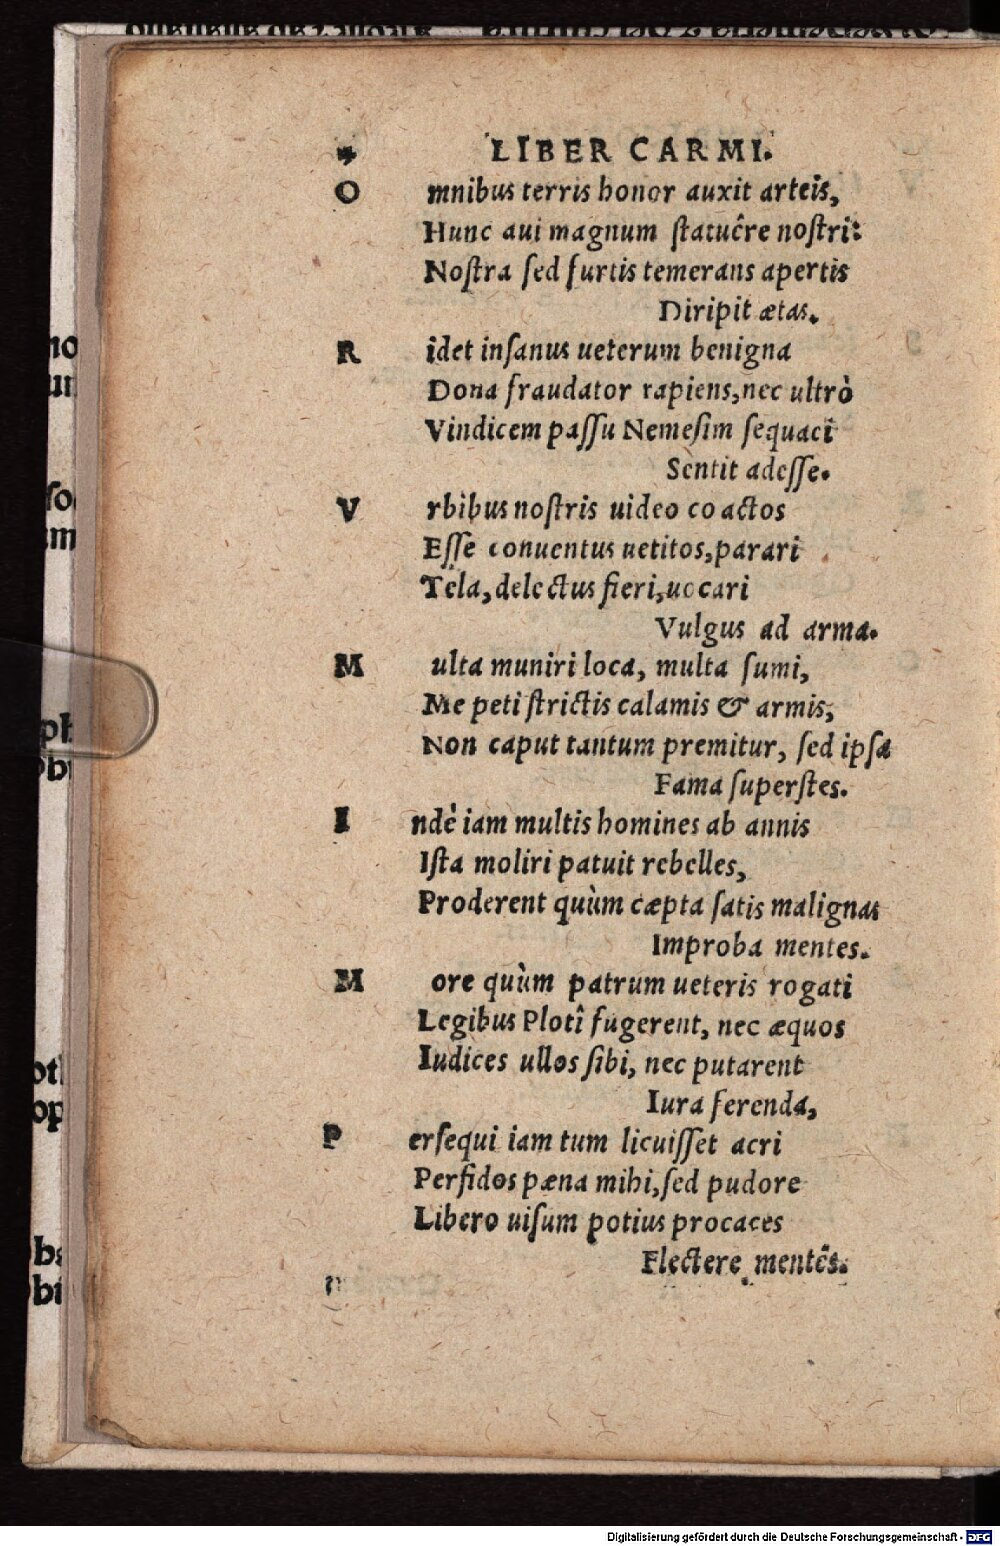 LIBER CARMI.
O mnibus terris honor auxit arteis,
Hunc aui magnum ſtatuêre noſtri:
Noſtra ſed furtis temerans apertis
Diripit ætas.
R idet inſanus ueterum benigna
Dona fraudator rapiens, nec ultrò
Vindicem paſſu Nemeſim ſequaci
Sentit adeſſe.
V rbibus noſtris uideo coactos
Eſſe conuentus uetitos, parari
Tela, delectus fieri, uocari
Vulgus ad arma.
M ulta muniri loca, multa ſumi,
Me peti ſtrictis calamis & armis,
Non caput tantum premitur, ſed ipſa
Fama ſuperſtes.
I ndè iam multis homines ab annis
Iſta moliri patuit rebelles,
Proderent quùm cæpta ſatis malignas
Improba mentes.
M ore quùm patrum ueteris rogati
Legibus Plotî fugerent, nec æquos
Iudices ullos ſibi, nec putarent
Iura ferenda,
P erſequi iam tum licuiſſet acri
Perfidos pæna mihi, ſed pudore
Libero uiſum potius procaces
Flectere mentês.
Digitalisierung gefördert durch die Deutsche Forschungsgemeinschaft - DFG